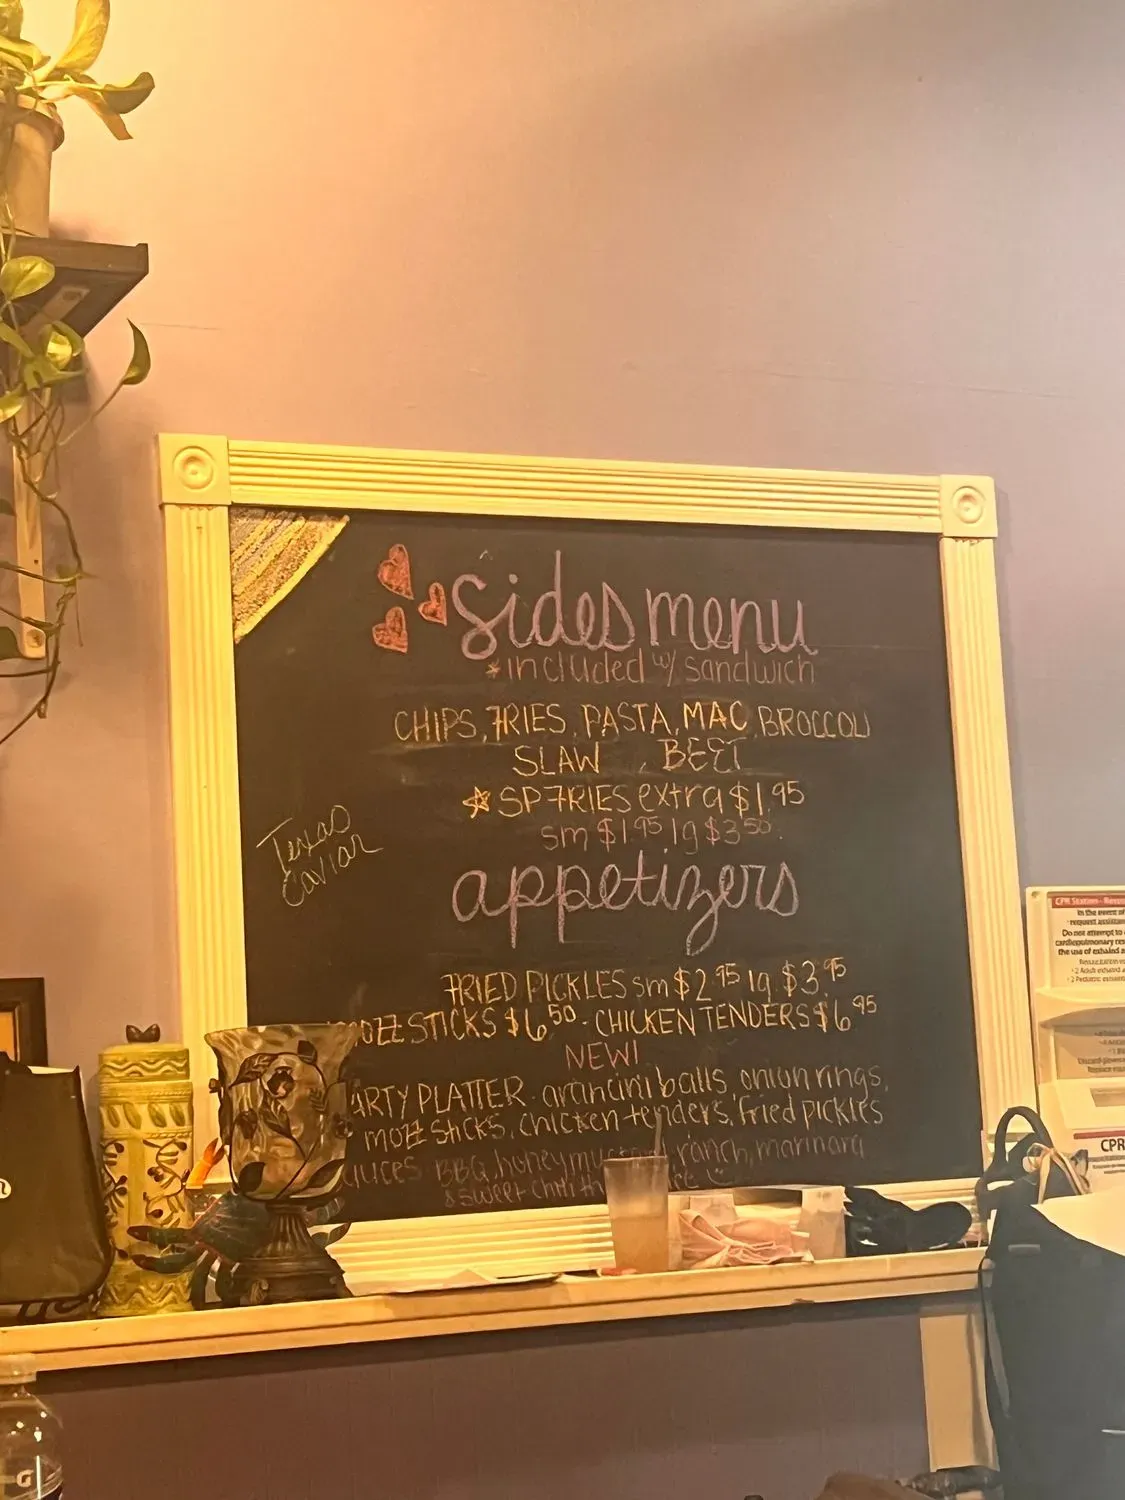 Sides menu
*included w/ sandwich
CHIPS, FRIES, PASTA, MAC, BROCCOLI
SLAW , BEET
☆ SP FRIES extra $1.95
sm $1.95 lg $3.50
Texas
Caviar
appetizers
FRIED PICKLES sm $2.95 lg $3.95
MOZZ STICKS $6.50 - CHICKEN TENDERS $6.95
NEW!
PARTY PLATTER. arancini balls, onion rings,
mozz sticks, chicken tenders, fried pickles
sauces BBQ, honey mustard, ranch, marinara
& sweet chili
CPR Station
In the event of
request assistance
Do not attempt to
the use of exhaled
CPR
G